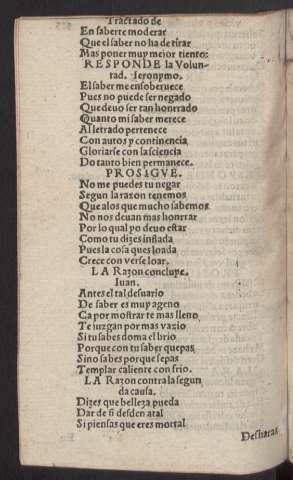 Tractado de
En saberte moderar
Que el saber no ha de tirar
Mas poner muy mejor tiento:
RESPONDE la Volun-
tad. Ieronymo.
El saber me ensoberuece
Pues no puede ser negado
Que deuo ser tan honrrado
Quanto mi saber merece
Al letrado pertenece
Con autos y continencia
Gloriarse con la sciencia
Do tanto bien permanece.
PROSIGVE.
No me puedes tu negar
Segun la razon tenemos
Que a los que mucho sabemos
No nos deuan mas honrrar
Por lo qual yo deuo estar
Como tu dizes inflada
Pues la cosa ques loada
Crece con verse loar.
LA Razon concluye.
Iuan.
Antes el tal desuario
De saber es muy ageno
Ca por mostrarte mas lleno
Te iuzgan por mas vazio
Si tu sabes doma el brio
Porque con tu saber quepas
Sino sabes porque sepas
Templar caliente con frio.
LA Razon contra la segun
da causa.
Dizes que belleza pueda
Dar de si desden atal
Si piensas que eres mortal
Desharas